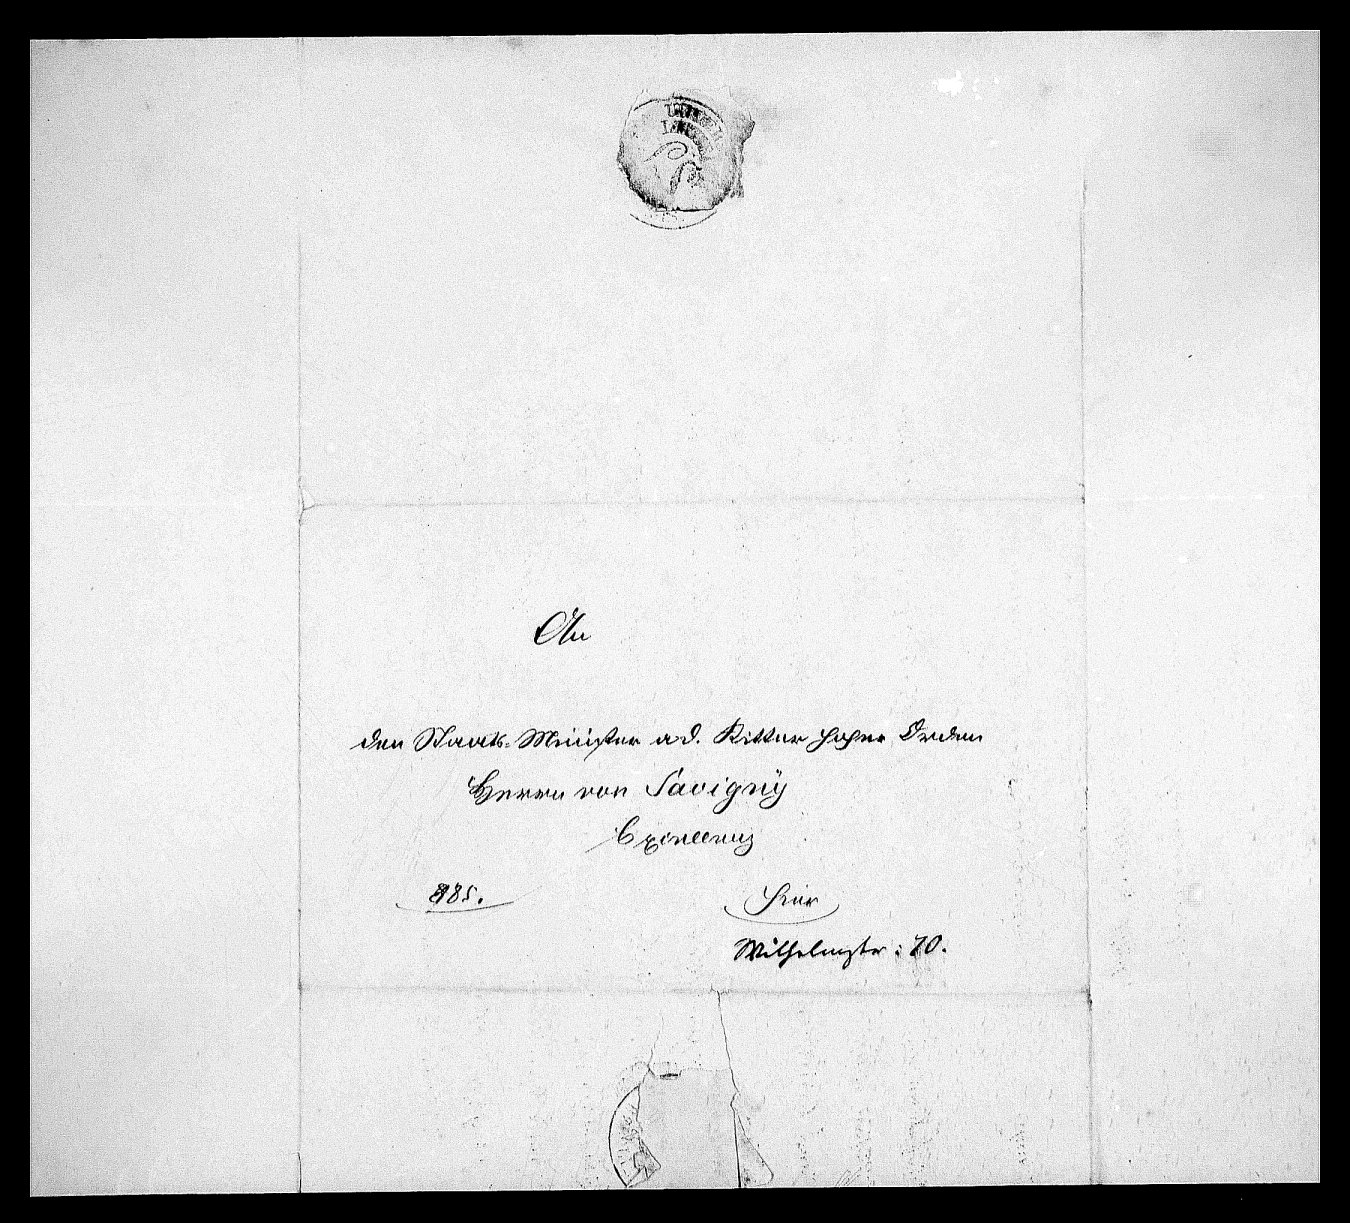 An
den Staats-Minister a.d. Ritter hoher Orden
Herrn von Savigny
Excellenz
885.
hier
Wilhelmstr: 70.